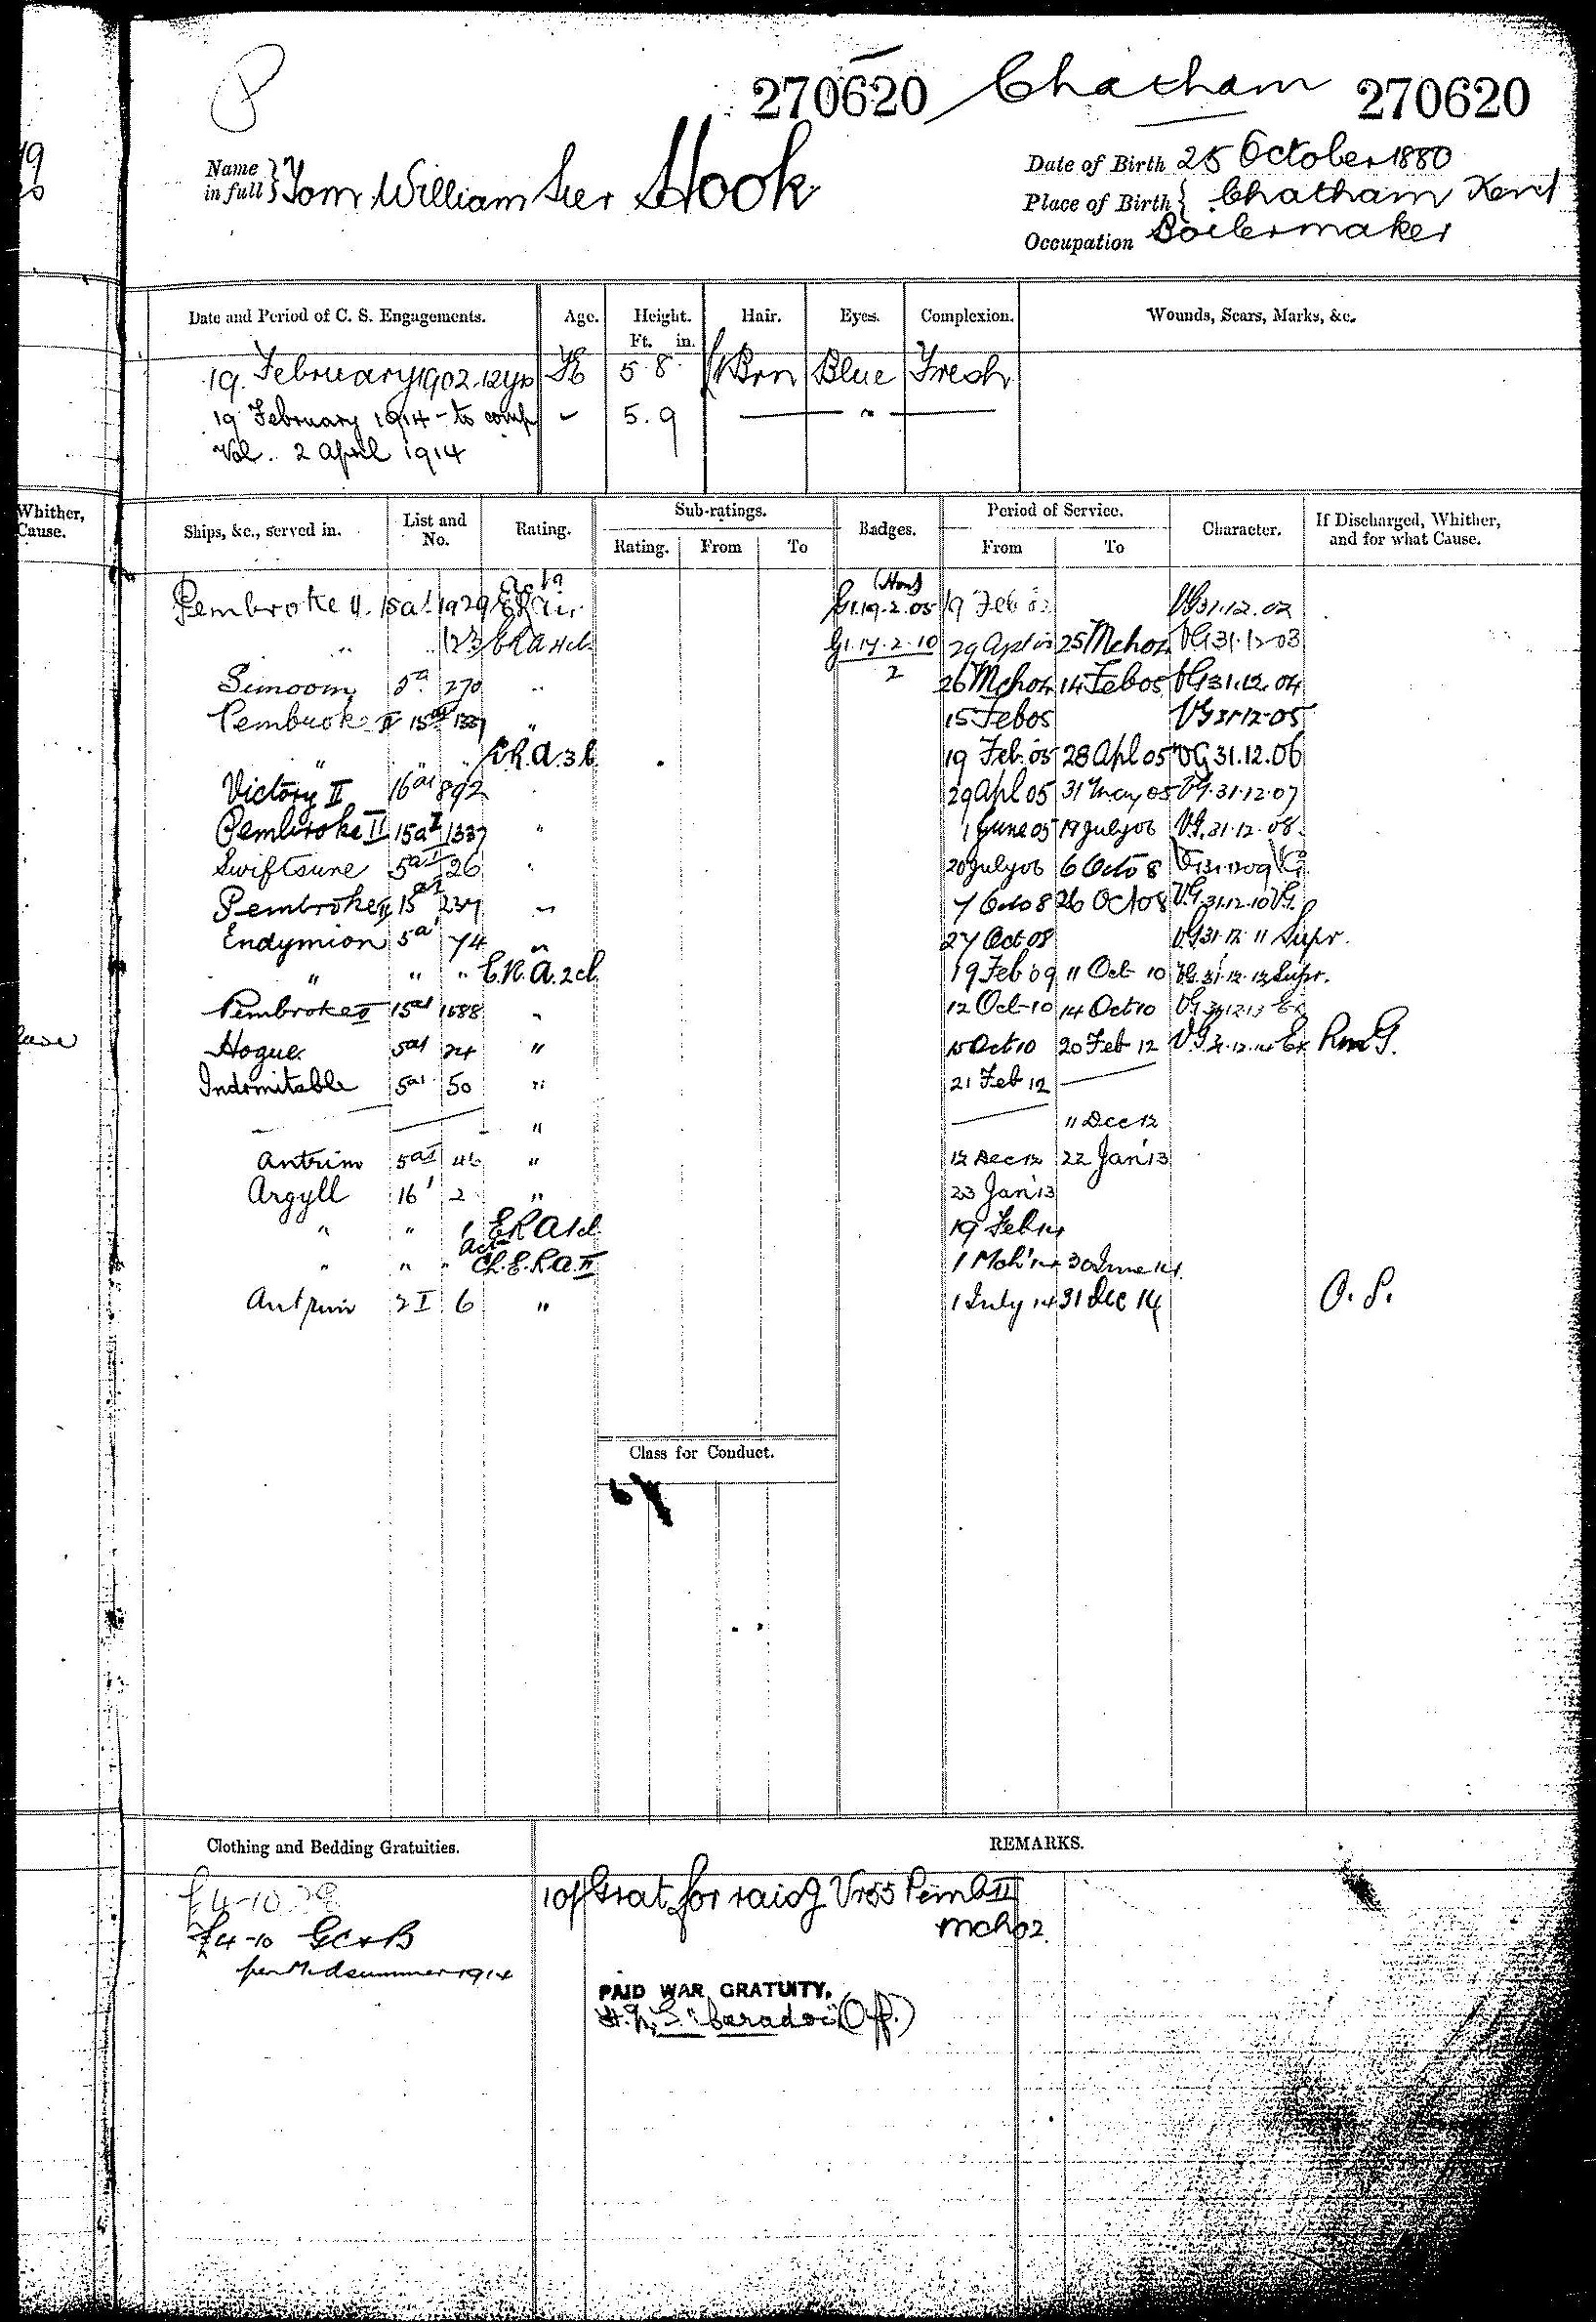 P
270620 Chatham 270620
Name in full } Tom William Hook
Date of Birth 25 October 1880
Place of Birth { Chatham Kent
Occupation Boilermaker
Date and Period of C. S. Engagements. Age. Height. Ft. in. Hair. Eyes. Complexion. Wounds, Scars, Marks, &c.
19 February 1902 12 yrs 5 8 Brn Blue Fresh
19 February 1914 - to comp - 5.9 "
Vol. 2 April 1914
Whither,
Cause.
Ships, &c., served in. List and No. Rating. Sub-ratings. Rating. From To Badges. Period of Service. From To Character. If Discharged, Whither, and for what Cause.
Pembroke II 15a1 1929 G1.19.2.05 19 Feb 02 VG 31.12.02
" " 123 ERA 4cl. G1.17.2.10 29 Apl 25 Mch 04 VG 31.12.03
2
Simoom 5a 270 " 26 Mch 04 14 Feb 05 VG 31.12.04
Pembroke II 15a1 1337 " 15 Feb 05 VG 31.12.05
" " " E.R.A. 3cl 19 Feb 05 28 Apl 05 VG 31.12.06
Victory II 16a1 892 29 Apl 05 31 May 05 VG 31.12.07
Pembroke II 15aI 1337 " 1 June 05 19 July 06 VG 31.12.08
Swiftsure 5aI 26 " 20 July 06 6 Oct 08 VG 31.12.09 VG
Pembroke II 15aI 237 " 7 Oct 08 26 Oct 08 VG 31.12.10 VG.
Endymion 5a1 74 " 27 Oct 08 VG 31.12.11 Supr.
" " " E.R.A. 2cl. 19 Feb 09 11 Oct 10 VG 31.12.12 Supr.
Pembroke II 15a1 1588 " 12 Oct 10 14 Oct 10 VG 31.12.13 Ex
Hogue 5a1 24 " 15 Oct 10 20 Feb 12 VG 31.12.14 Ex RmG.
Indomitable 5a1 50 " 21 Feb 12
" 11 Dec 12
Antrim 5aI 46 " 12 Dec 12 22 Jan 13
Argyll 16 1 2 " 23 Jan 13
" " 1 E.R.A. 1cl. 19 Feb 14
" " " Actg Ch. E.R.A. II 1 Mch 14 30 June 14
Antrim 2 I 6 " 1 July 14 31 Dec 14 O.S.
Class for Conduct.
Clothing and Bedding Gratuities. REMARKS.
£4-10
£4-10 GC&B
per Midsummer 1914
10/ Grat for raisg Pemb II
Mch 02.
PAID WAR GRATUITY.
H.M.S. "Caradoc" (Off.)